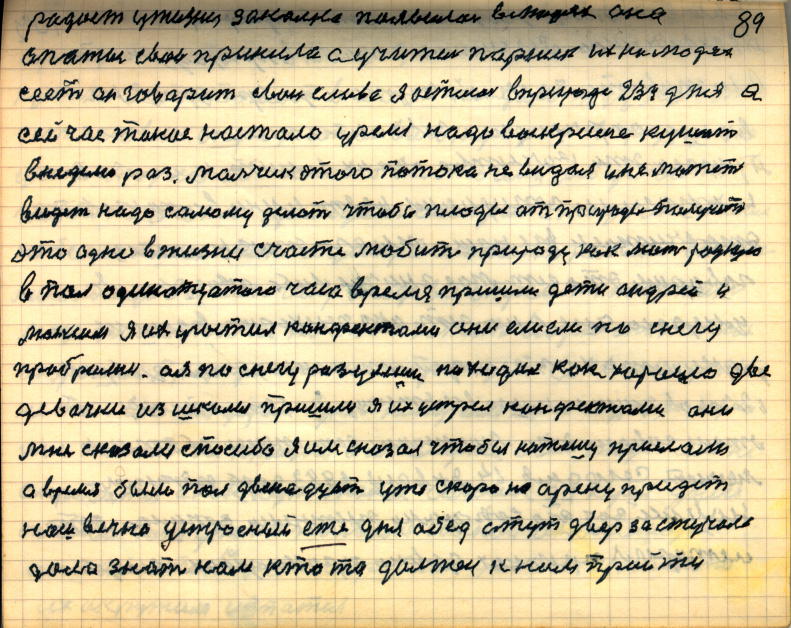 радост у жизни законна появилас в людях она 89
опят свое принила а учител парнии их на модя
сеет он говарит свои слива я остался в природе 234 дня а
сейчас такое настало уремя надо воскрисене кушат
в неделю раз. малчик этого потока не видал и не может
видет надо самому делат чтобы плоды от природы получит
это одно в жизни счасте любит природу как мат родную
в пол одинатцатого часа время пришли дети андрей и
максим я их угостил конфектами они ели по снегу
пробрались. а я по снегу разушин походил как хорошо две
девачки из школи пришли я их устрел конфектами они
мне сказали спосибо я им сказал чтобы наташу прислали
а время было пол двенадцат уже скоро на арену придет
наш вечно устроеный еже дня обед стут двер застучала
дала знат нам кто то должен к нам прийти